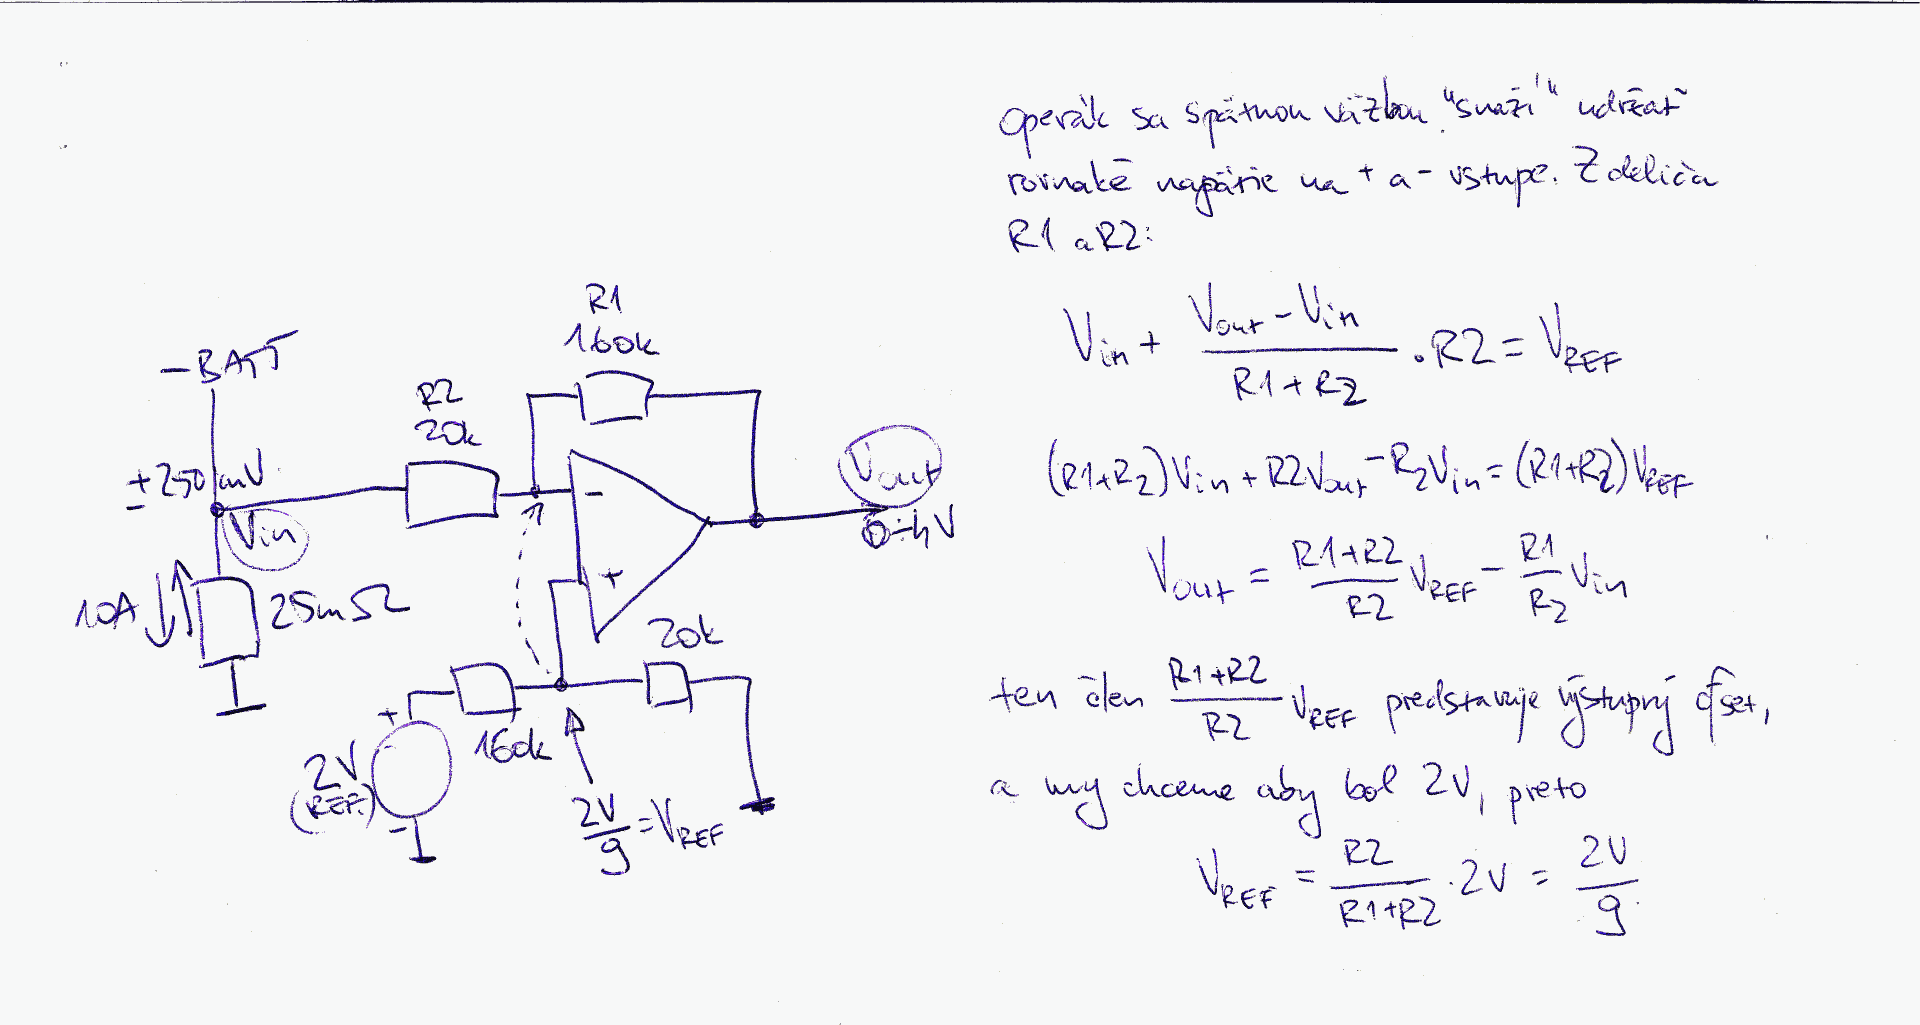 -BATT
±250mV
Vin
10A
25mΩ
R2
20k
R1
160k
-
+
Vout
0÷4V
20k
160k
+
-
2V
(REF.)
2V/9 = VREF
Operák sa spätnou väzbou "snaží" udržať
rovnaké napätie na + a - vstupe. Z deliča
R1 a R2:
Vin + (Vout - Vin)/(R1 + R2) . R2 = VREF
(R1+R2)Vin + R2Vout - R2Vin = (R1+R2)VREF
Vout = (R1+R2)/R2 VREF - R1/R2 Vin
ten člen (R1+R2)/R2 VREF predstavuje výstupný ofset,
a my chceme aby bol 2V, preto
VREF = R2/(R1+R2) . 2V = 2V/9